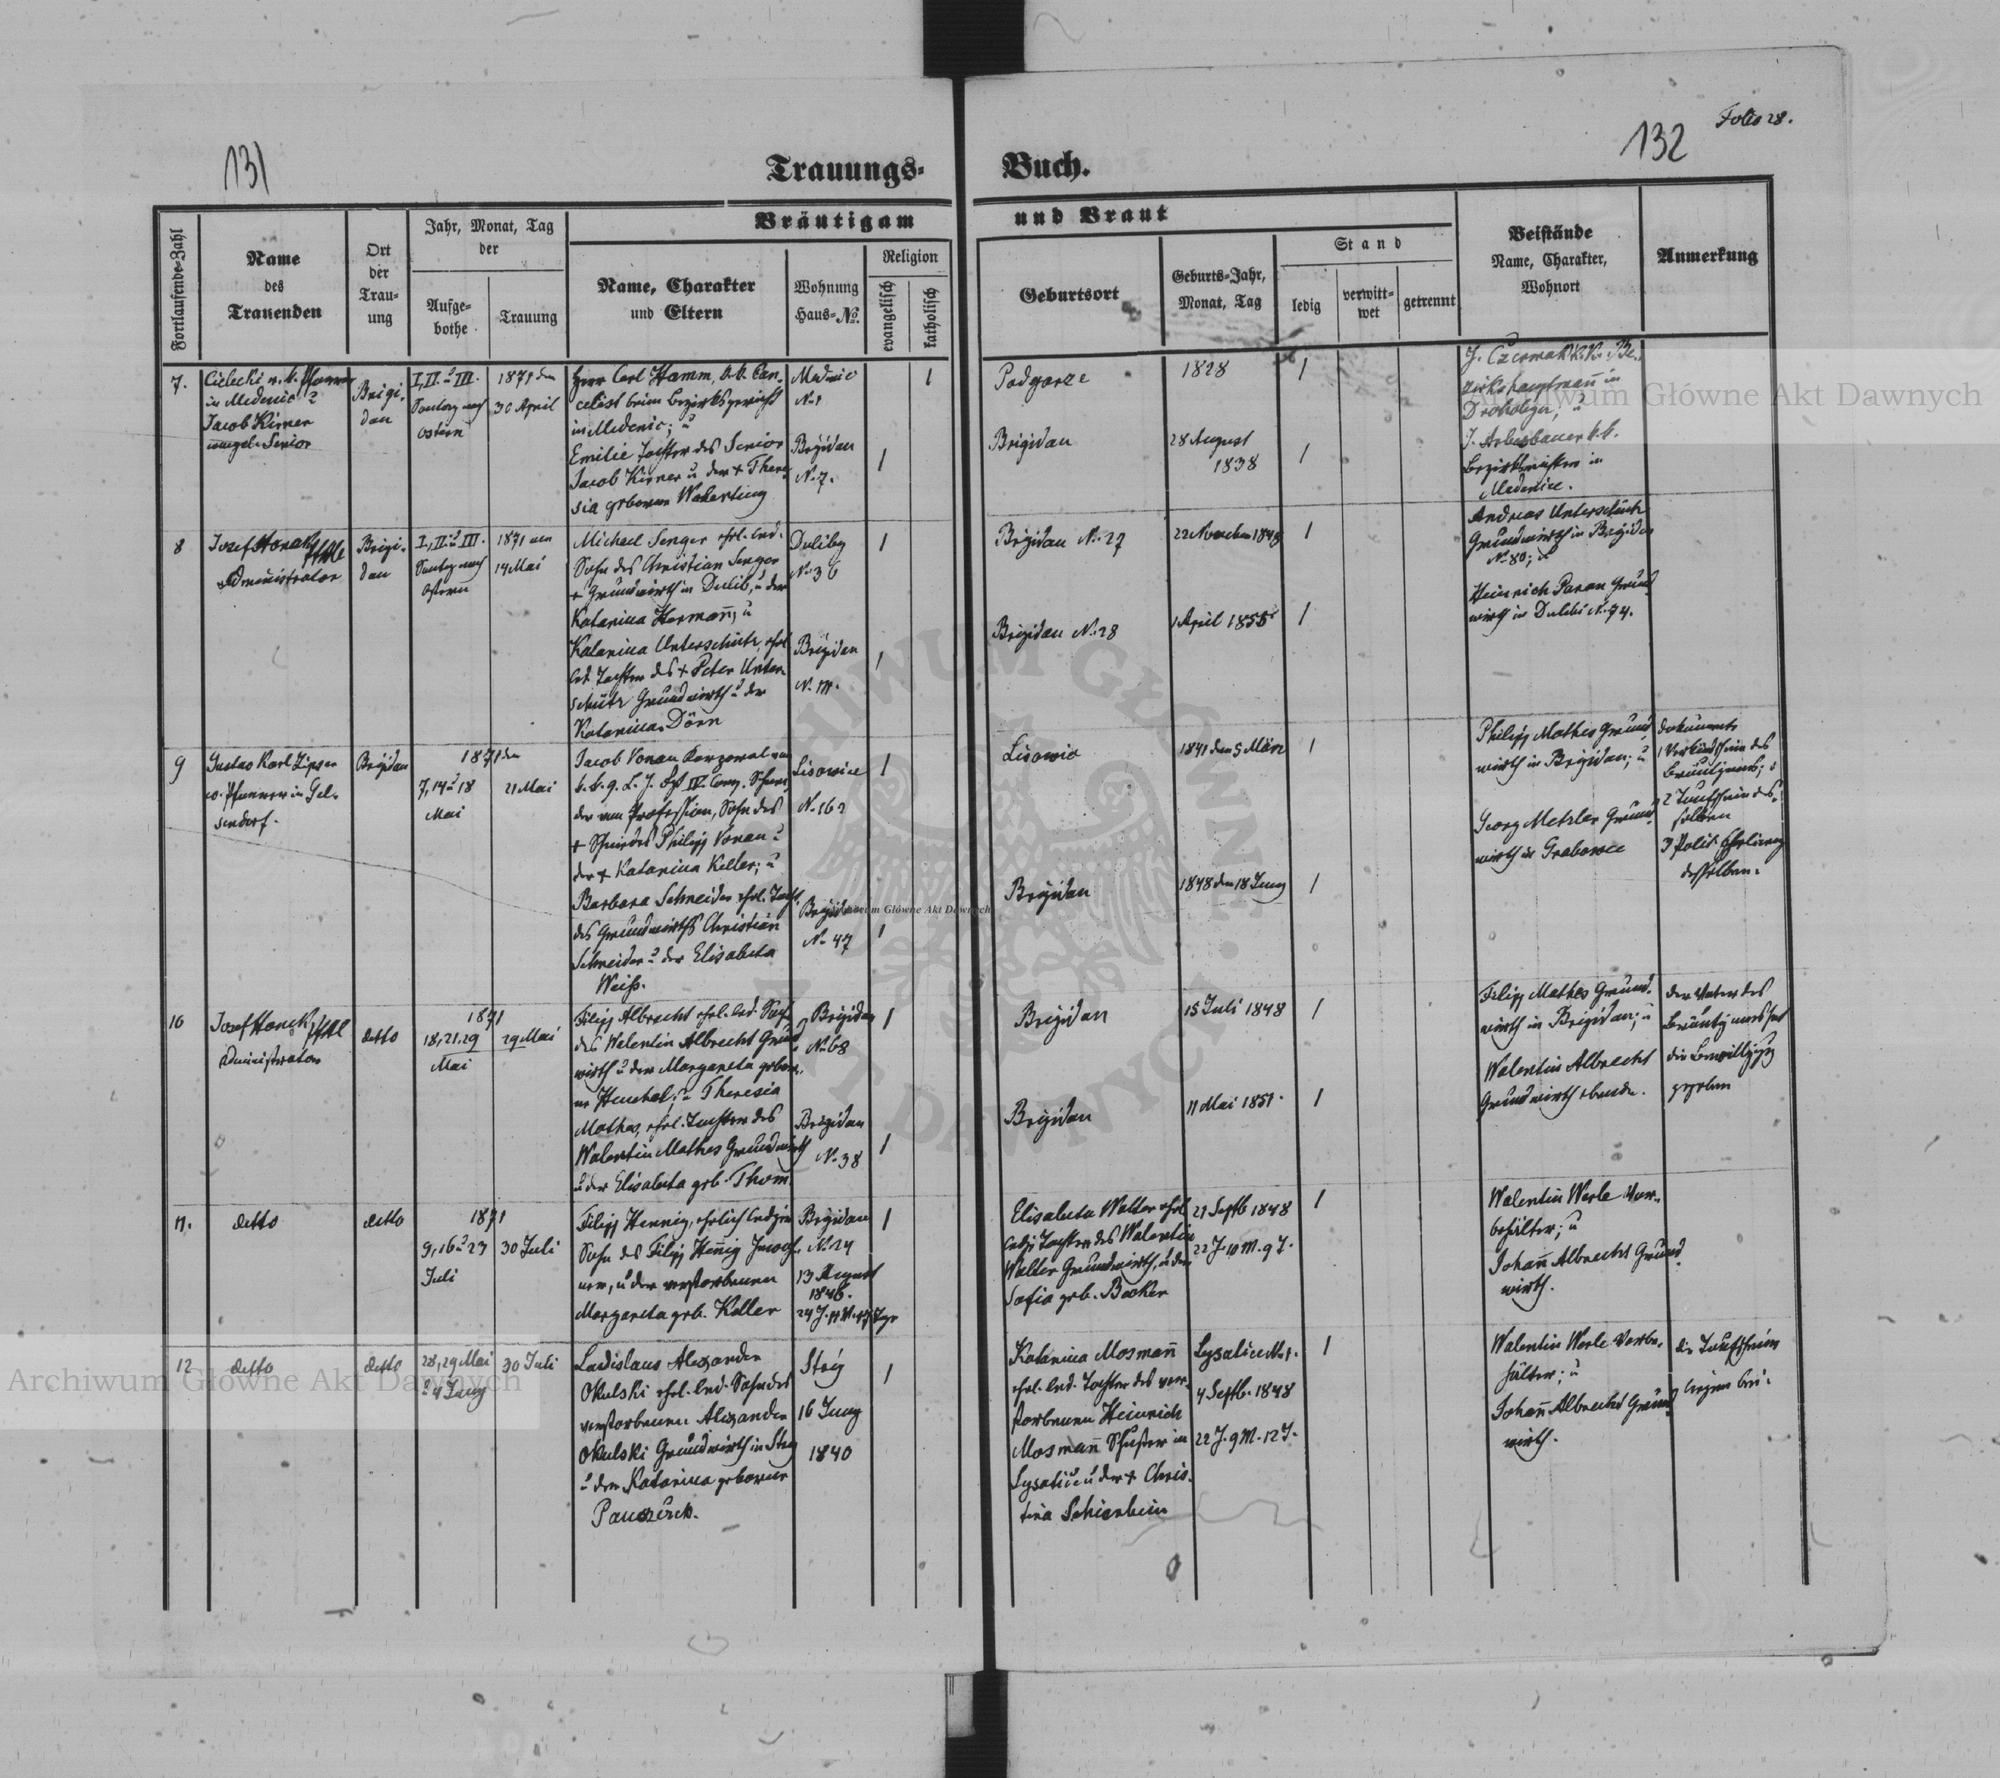 131
132
Folio 28.
Trauungs-
Buch.
Fortlaufende-Zahl
Name
des
Trauenden
Ort
der
Trau-
ung
Jahr, Monat, Tag
der
Aufge-
bothe
Trauung
Bräutigam
und Braut
Name, Charakter
und Eltern
Wohnung
Haus-No.
Religion
evangelisch
katholisch
Geburtsort
Geburts-Jahr,
Monat, Tag
Stand
ledig
verwitt-
wet
getrennt
Beistände
Name, Charakter,
Wohnort
Anmerkung
7.
Cielecki r. k. Pfarrer
in Medenic u
Jacob Kirner
evangel. Senior
Brigi-
dau
I, II. u III.
Sontag nach
Ostern
1871 den
30 April
Herr Carl Hamm, k. k. Can-
celist beim Bezirksgericht
in Medenic; u
Emilie Tochter des Senior
Jacob Kirner u der + There-
sia geboren
Medenic
N. 1
Brigidau
N. 7.
1
1
Podgorze
Brigidau
1828
28 August
1838
1
1
J. Czermak K. K. Be-
zirkshauptmann in
u
J. k. k.
Bezirksrichter in
Medenice.
8
Josef Honcky
Administrator
Brigi-
dau
I, II. u III.
Sontag nach
Ostern
1871 den
14 Mai
Michael Senger ehl. led.
Sohn des Christian Senger
+ Grundwirth in Dulib, u der
Katarina Hermann; u
Katarina Unterschütz, ehl
led Tochter des + Peter Unter-
schütz Grundwirth u der
Katarina Dörn
Duliby
N. 36
Brigidau
1
1
Brigidau N. 27
Brigidau N. 28
22 November 1849
1 April
1
1
Andreas Unterschütz
Grundwirth in Brigidau
No 80; u
Heinrich Paran Grund-
wirth in Dulibi N. 74.
9
Gustav Karl Zipser
ev. Pfarrer in Gel-
sendorf.
Brigidau
1871 den
7, 14 u 18
Mai
21 Mai
Jacob Vonau
der von Profession, Sohn des
+ Philipp Vonau u
der + Katarina Keller; u
Barbara Schneider ehl. Toch.
des Grundwirths Christian
Schneider u der Elisabeta
Weiß.
Lisowice
N. 162
Brigidau
No 47
1
1
Lisowic
Brigidau
1841 den 5 März
1848 den 18 Juny
1
1
Philipp Mathes Grund-
wirth in Brigidau; u
Georg Metzler Grund-
wirth in Grabowce
Dokumente
1 Verkündschein des
Bräutigams;
2 Taufschein des-
selben
3 Polit.
desselben.
10
Josef Honcky
Administrator
detto
1871
18, 21, 29
Mai
29 Mai
Filipp Albrecht ehl. led. Sohn
des Walentin Albrecht Grund-
wirth u der Margareta gebor-
ne Henchel; u Theresia
Mathes, ehl. Tochter des
Walentin Mathes Grundwirth
u der Elisabeta geb. Thom.
Brigidau
No 68
Brigidau
N. 38
1
1
Brigidau
Brigidau
15 Juli 1848
11 Mai 1851.
1
1
Filipp Mathes Grund-
wirth in Brigidau; u
Walentin Albrecht
Grundwirth
der Vater des
Bräutigams hat
die Bewilligung
gegeben
11.
detto
detto
1871
9, 16 u 23
Juli
30 Juli
Filipp Hennig, ehelich lediger
Sohn des Filipp Hennig
ner, u der verstorbenen
Margareta geb. Koller
Brigidau
N. 24
13 August
1846.
24 J. 11 M. 17 Tage
1
Elisabeta Walter ehl
led Tochter des Walentin
Walter Grundwirth, u der
Sofia geb. Becker
21 Septb 1848
22 J. 10 M. 9 T.
1
Walentin Werle Vor-
behälter; u
Johann Albrecht Grund-
wirth.
12
detto
detto
28, 29 Mai
u 4 Juny
30 Juli
Ladislaus Alexander
Okulski ehl. led. Sohn des
verstorbenen Alexander
Okulski Grundwirth in Stryj
u der Katarina geborne
Stryj
16 Juny
1840
1
Katarina Mosmann
ehl. led. Tochter des ver-
storbenen Heinrich
Mosmann Schuster in
Lysatice u der + Chris-
tina
Lysatice N. 1.
4 Septb. 1848
22 J. 9 M. 12 T.
1
Walentin Werle Vorbe-
hälter; u
Johann Albrecht Grund-
wirth.
die Taufscheine
liegen bei.
Archiwum Główne Akt Dawnych
Archiwum Główne Akt Dawnych
Archiwum Główne Akt Dawnych
ARCHIWUM GŁÓWNE
AKT DAWNYCH